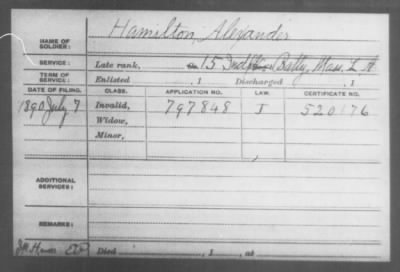 NAME OF SOLDIER: Hamilton, Alexander
SERVICE: Late rank, 15 Ind Batty, Mass. L. A.
TERM OF SERVICE: Enlisted , 1 Discharged , 1
DATE OF FILING. CLASS. APPLICATION NO. LAW. CERTIFICATE NO.
1890 July 7 Invalid, 797848 J 520176
Widow,
Minor,
ADDITIONAL SERVICES:
REMARKS:
Died , 1 , at